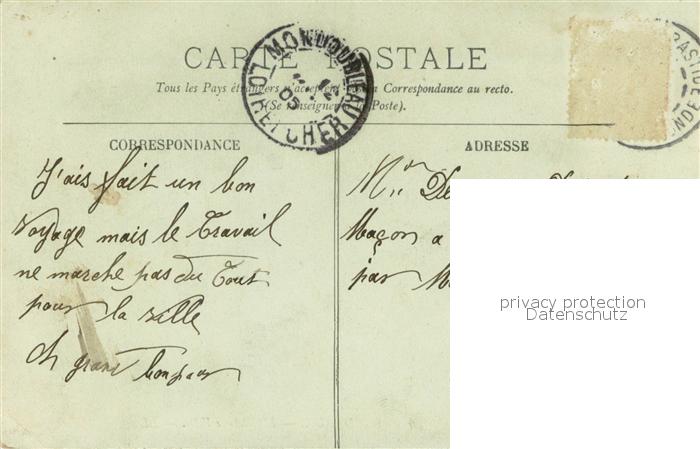 CARTE POSTALE
Tous les Pays étrangers n'acceptent pas la Correspondance au recto.
(Se renseigner à la Poste).
MONDOUBLEAU
LOIR ET CHER
05
CORRESPONDANCE
J'ais fait un bon
voyage mais le Travail
ne marche pas du Tout
pour la ville
grand bonjour
ADRESSE
Mr
Maçon a
par
privacy protection
Datenschutz